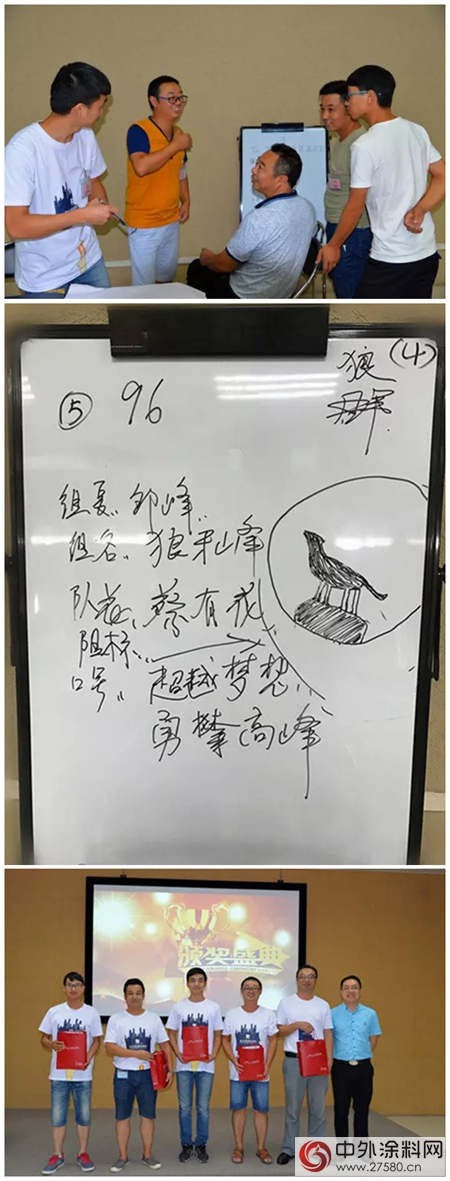 ⑤ 96
狼
(4)
群
组长: 邹峰
组名: 狼牙山峰
队花: 蔡有成
组标:
口号: 超越梦想
勇攀高峰
颁奖盛典
中外涂料网
www.27580.cn